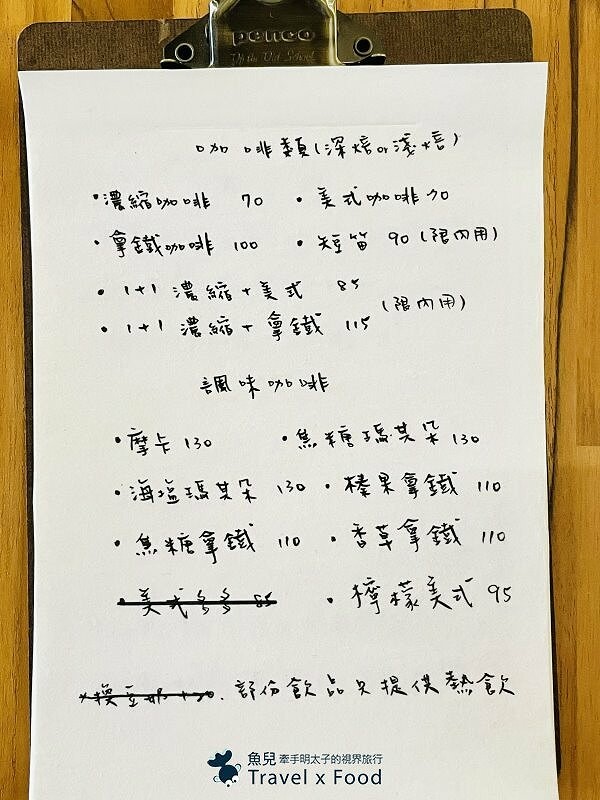 penco
咖啡類(深焙or淺焙)
·濃縮咖啡 70 ·美式咖啡 70
·拿鐵咖啡 100 ·短笛 90 (限內用)
·1+1 濃縮+美式 85
·1+1 濃縮+拿鐵 115 (限內用)
調味咖啡
·摩卡 130 ·焦糖瑪其朵 130
·海塩瑪其朵 130 ·榛果拿鐵 110
·焦糖拿鐵 110 ·香草拿鐵 110
·美式 85 ·檸檬美式 95
部份飲品只提供熱飲
魚兒 牽手明太子的視界旅行
Travel x Food